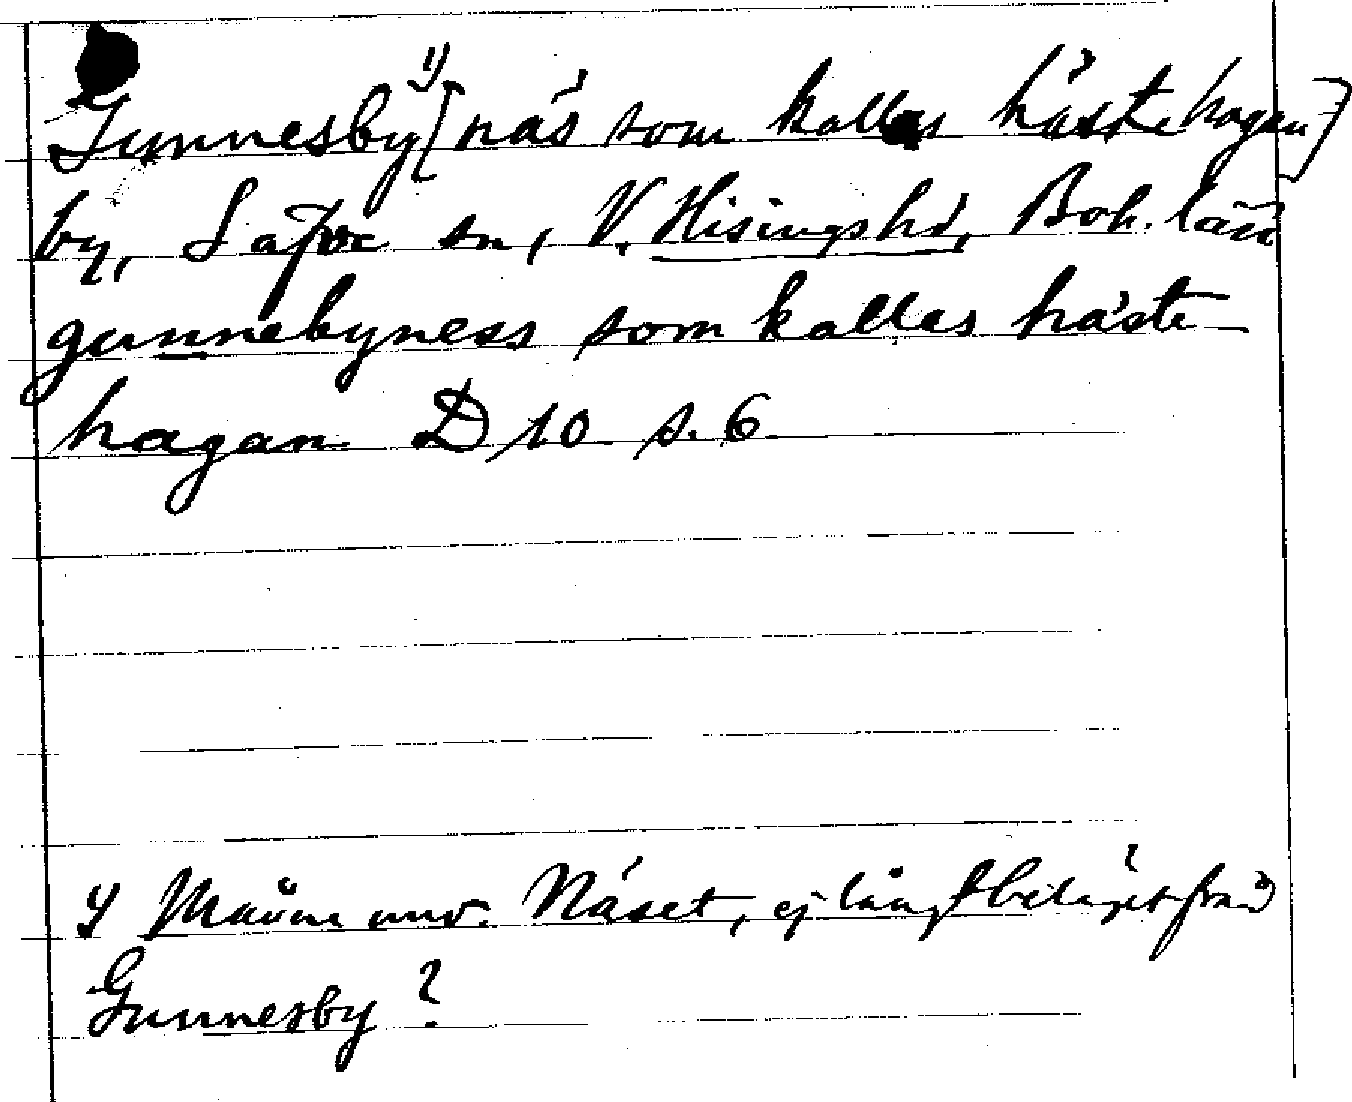 Gunnesby 1) [näs som kallas hästehagen]
by, Säve sn, V. Hisings hd, Boh. län
gunnebyness som kallas häste-
hagan D 10 s. 6
1) Månne nuv. Näset, ej långt beläget från
Gunnesby?